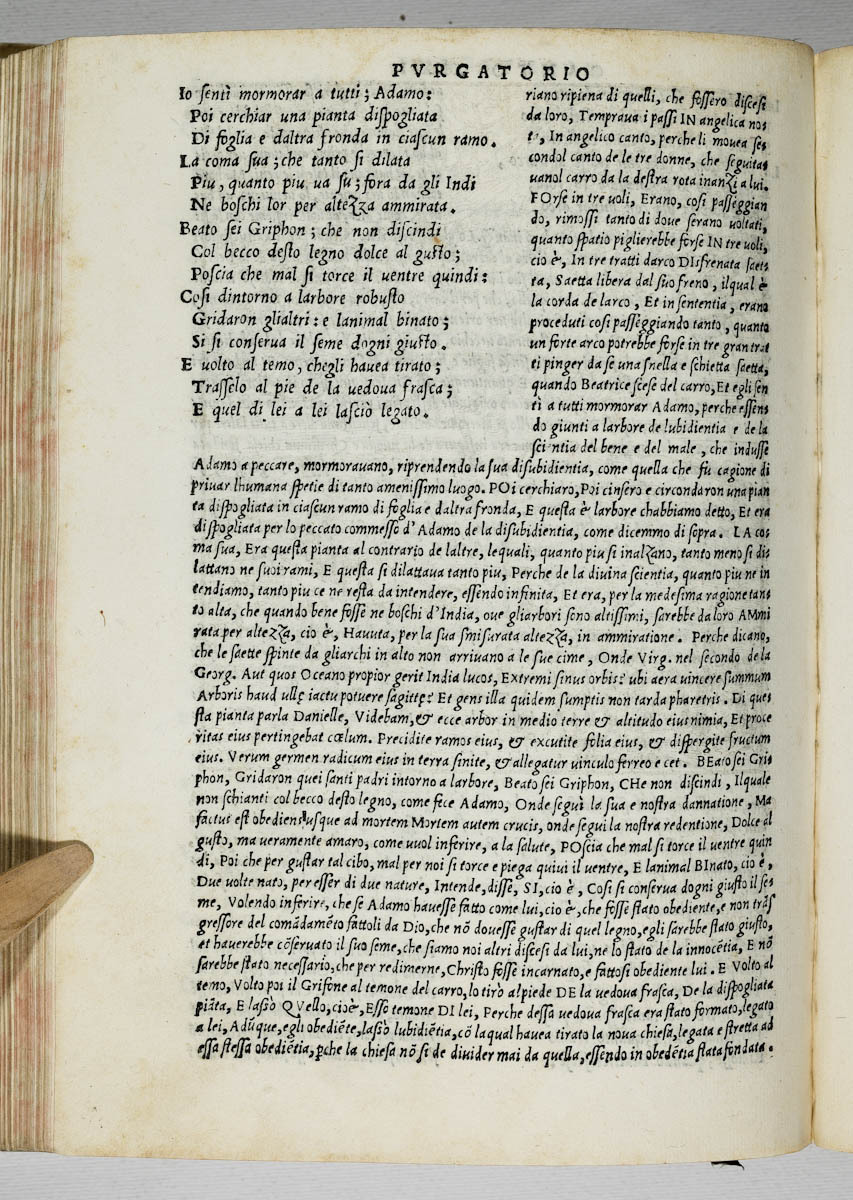 PVRGATORIO
Io sentì mormorar a tutti; Adamo:
Poi cerchiar una pianta dispogliata
Di foglia e daltra fronda in ciascun ramo.
La coma sua; che tanto si dilata
Piu, quanto piu ua su; fora da gli Indi
Ne boschi lor per altezza ammirata.
Beato sei Griphon; che non discindi
Col becco desto legno dolce al gusto;
Poscia che mal si torce il uentre quindi:
Cosi dintorno a larbore robusto
Gridaron glialtri: e lanimal binato;
Si si conserua il seme dogni giusto.
E uolto al temo, chegli hauea tirato;
Trasselo al pie de la uedoua frasca;
E quel di lei a lei lasciò legato.
riano ripiena di quelli, che fossero discesi
da loro, Temprauai passi IN angelica nos
t, In angelico canto, perche li mouea se
condol canto de le tre donne, che seguita
uanol carro da la destra rota inanzi a lui.
FOrse in tre uoli, Erano, cosi passeggian
do, rimossi tanto di doue serano uoltati,
quanto spatio piglierebbe forse IN tre uoli,
cio è, In tre tratti darco DIsfrenata saet
ta, Saetta libera dal suo freno, ilqual è
la corda de larco, Et in sententia, erano
proceduti cosi passeggiando tanto, quanto
un forte arco potrebbe forse in tre gran trat
ti pinger da se una snella e schietta saetta,
quando Beatrice scese del carro, Et egli sen
tì a tutti mormorar Adamo, perche essen
do giunti a larbore de lubidientia e de la
scientia del bene e del male, che indusse
Adamo a peccare, mormorauano, riprendendo la sua disubidientia, come quella che fu cagione di
priuar lhumana spetie di tanto amenissimo luogo. POi cerchiaro, Poi cinsero e circondaron una pian
ta dispogliata in ciascun ramo di foglia e daltra fronda, E questa è larbore chabbiamo detto, Et era
dispogliata per lo peccato commesso d'Adamo de la disubidientia, come dicemmo di sopra. LA co
ma sua, Era questa pianta al contrario de laltre, lequali, quanto piu si inalzano, tanto meno si di
lattano ne suoi rami, E questa si dilattaua tanto piu, Perche de la diuina scientia, quanto piu ne in
tendiamo, tanto piu ce ne resta da intendere, essendo infinita, Et era, per la medesima ragione tan
to alta, che quando bene fosse ne boschi d'India, oue gliarbori sono altissimi, sarebbe da loro AMmi
rata per altezza, cio è, Hauuta, per la sua smisurata altezza, in ammiratione. Perche dicano,
che le saette spinte da gliarchi in alto non arriuano a le sue cime, Onde Virg. nel secondo de la
Georg. Aut quos Oceano propior gerit India lucos, Extremi sinus orbis? ubi aera uincere summum
Arboris haud ullę iactu potuere sagittę: Et gens illa quidem sumptis non tarda pharetris. Di que
sta pianta parla Danielle, Videbam, & ecce arbor in medio terre & altitudo eius nimia, Et proce
ritas eius pertingebat cœlum. Precidite ramos eius, & excutite folia eius, & dispergite fructum
eius. Verum germen radicum eius in terra sinite, & allegatur uinculo ferreo e cet. BEato sei Gri
phon, Gridaron quei santi padri intorno a larbore, Beato sei Griphon, CHe non discindi, Ilquale
non schianti col becco desto legno, come fece Adamo, Onde seguì la sua e nostra dannatione, Ma
factus est obediens usque ad mortem Mortem autem crucis, onde segui la nostra redentione, Dolce al
gusto, ma ueramente amaro, come uuol inferire, a la salute, POscia che mal si torce il uentre quin
di, Poi che per gustar tal cibo, mal per noi si torce e piega quiui il uentre, E lanimal BInato, cio è,
Due uolte nato, per esser di due nature, Intende, disse, SI, cio è, Cosi si conserua dogni giusto il se
me, Volendo inferire, che se Adamo hauesse fatto come lui, cio è, che fosse stato obediente, e non trãs
gressore del comãdamẽto fattoli da Dio, che nõ douesse gustar di quel legno, egli sarebbe stato giusto,
et hauerebbe cõseruato il suo seme, che siamo noi altri discesi da lui, ne lo stato de la innocẽtia, E nõ
sarebbe stato necessario, che per redimerne, Christo fosse incarnato, e fattosi obediente lui. E Volto al
temo, Volto poi il Grifone al temone del carro, lo tirò al piede DE la uedoua frasca, De la dispogliata
piãta, E lassò QVello, cioè, Esso temone DI lei, Perche dessa uedoua frasca era stato formato, legato
a lei, Adũque, egli obediẽte, lassò lubidiẽtia, cõ laqual hauea tirato la noua chiesa, legata e stretta ad
essa stessa obediẽtia, ꝑche la chiesa nõ si de diuider mai da quella, essendo in obedẽtia stata fondata.